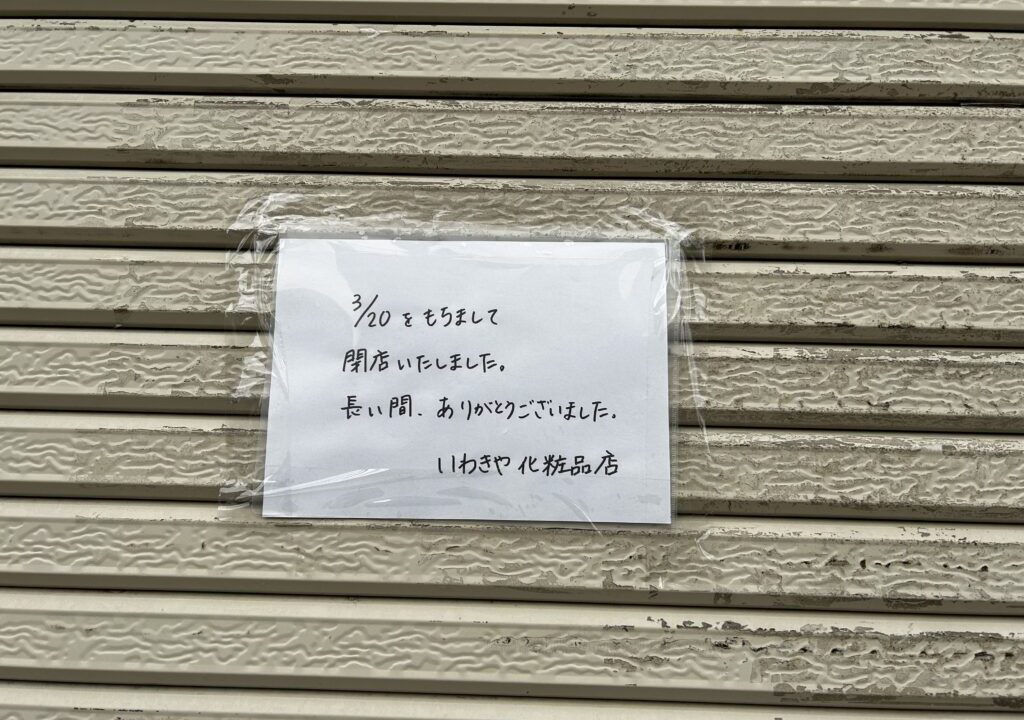 3/20をもちまして
閉店いたしました。
長い間、ありがとうございました。
いわきや化粧品店